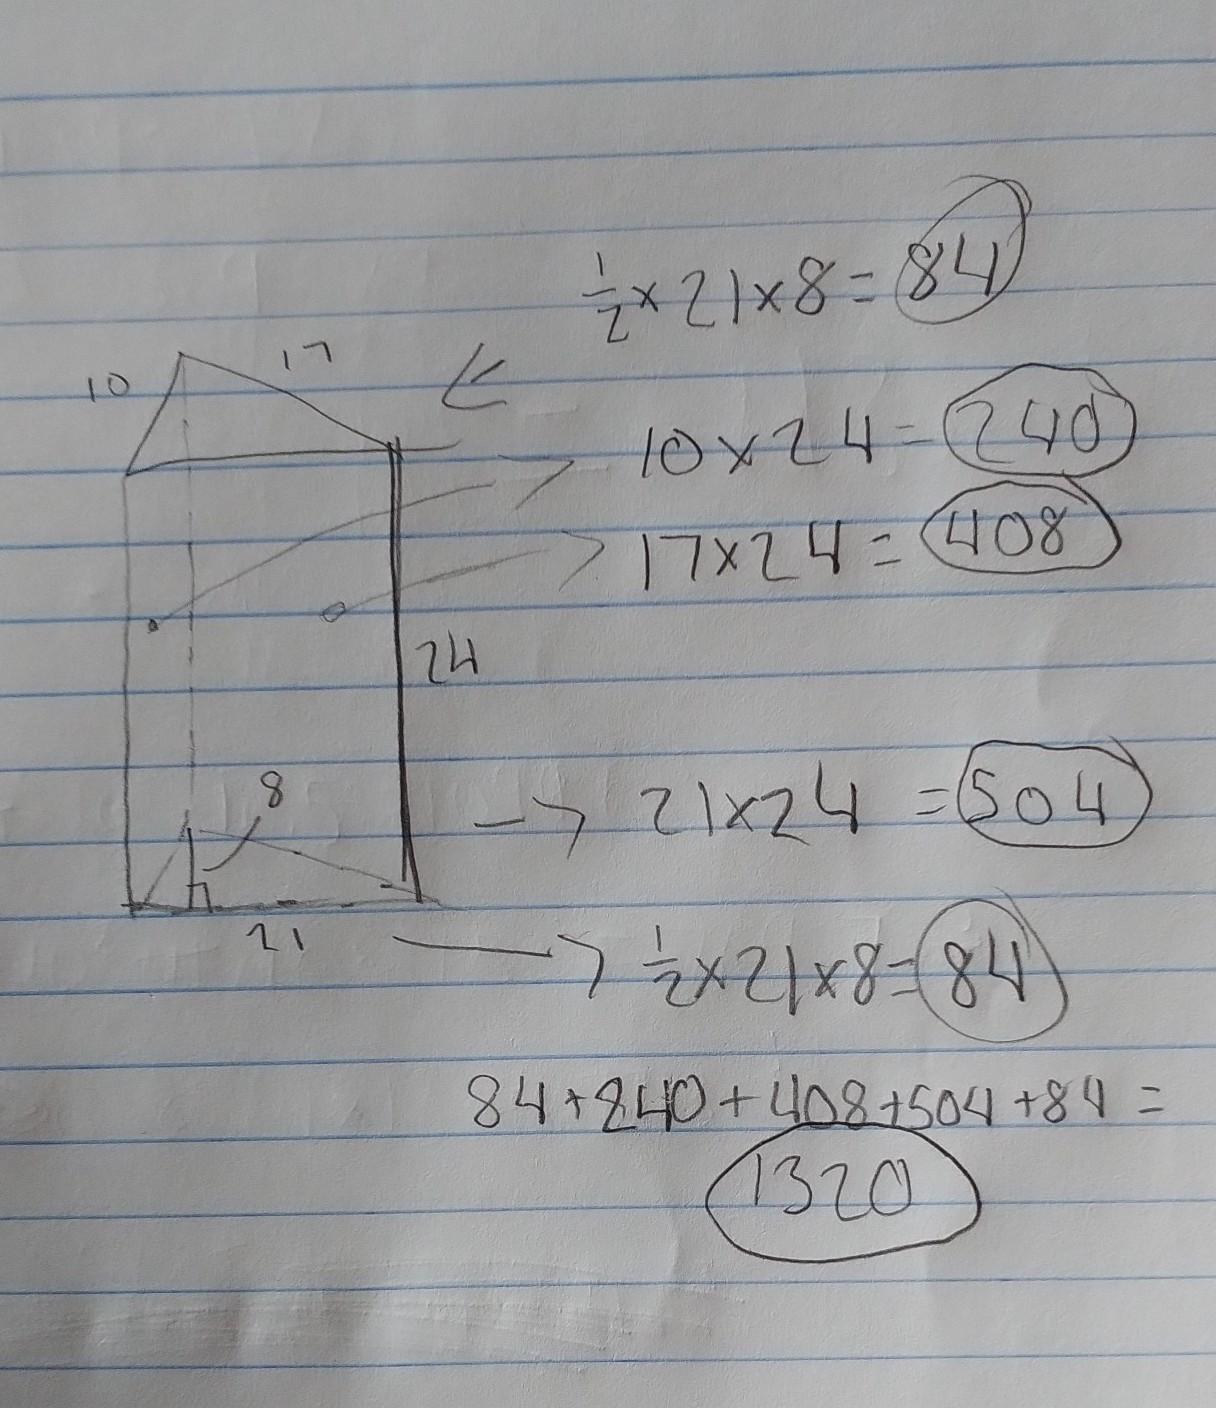 ½×21×8=84
17
10
10×24=240
17×24=408
24
8
21×24=504
21
½×21×8=84
84+240+408+504+84=
1320